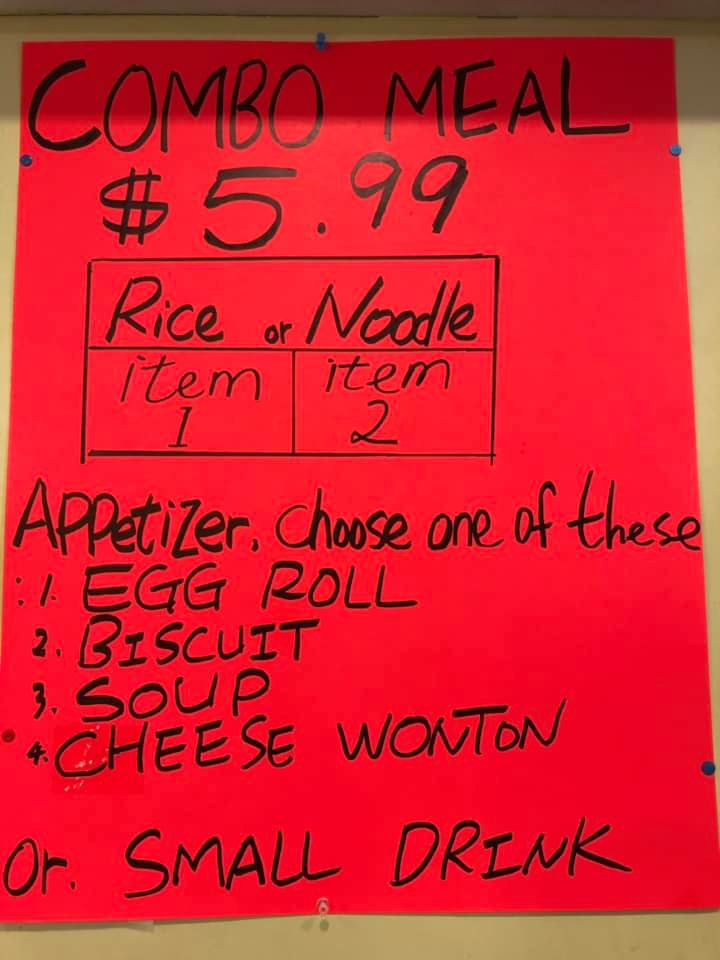 COMBO MEAL
$5.99
Rice or Noodle
item item
1 2
APPetizer. choose one of these
:1. EGG ROLL
2. BISCUIT
3. SOUP
4. CHEESE WONTON
Or. SMALL DRINK